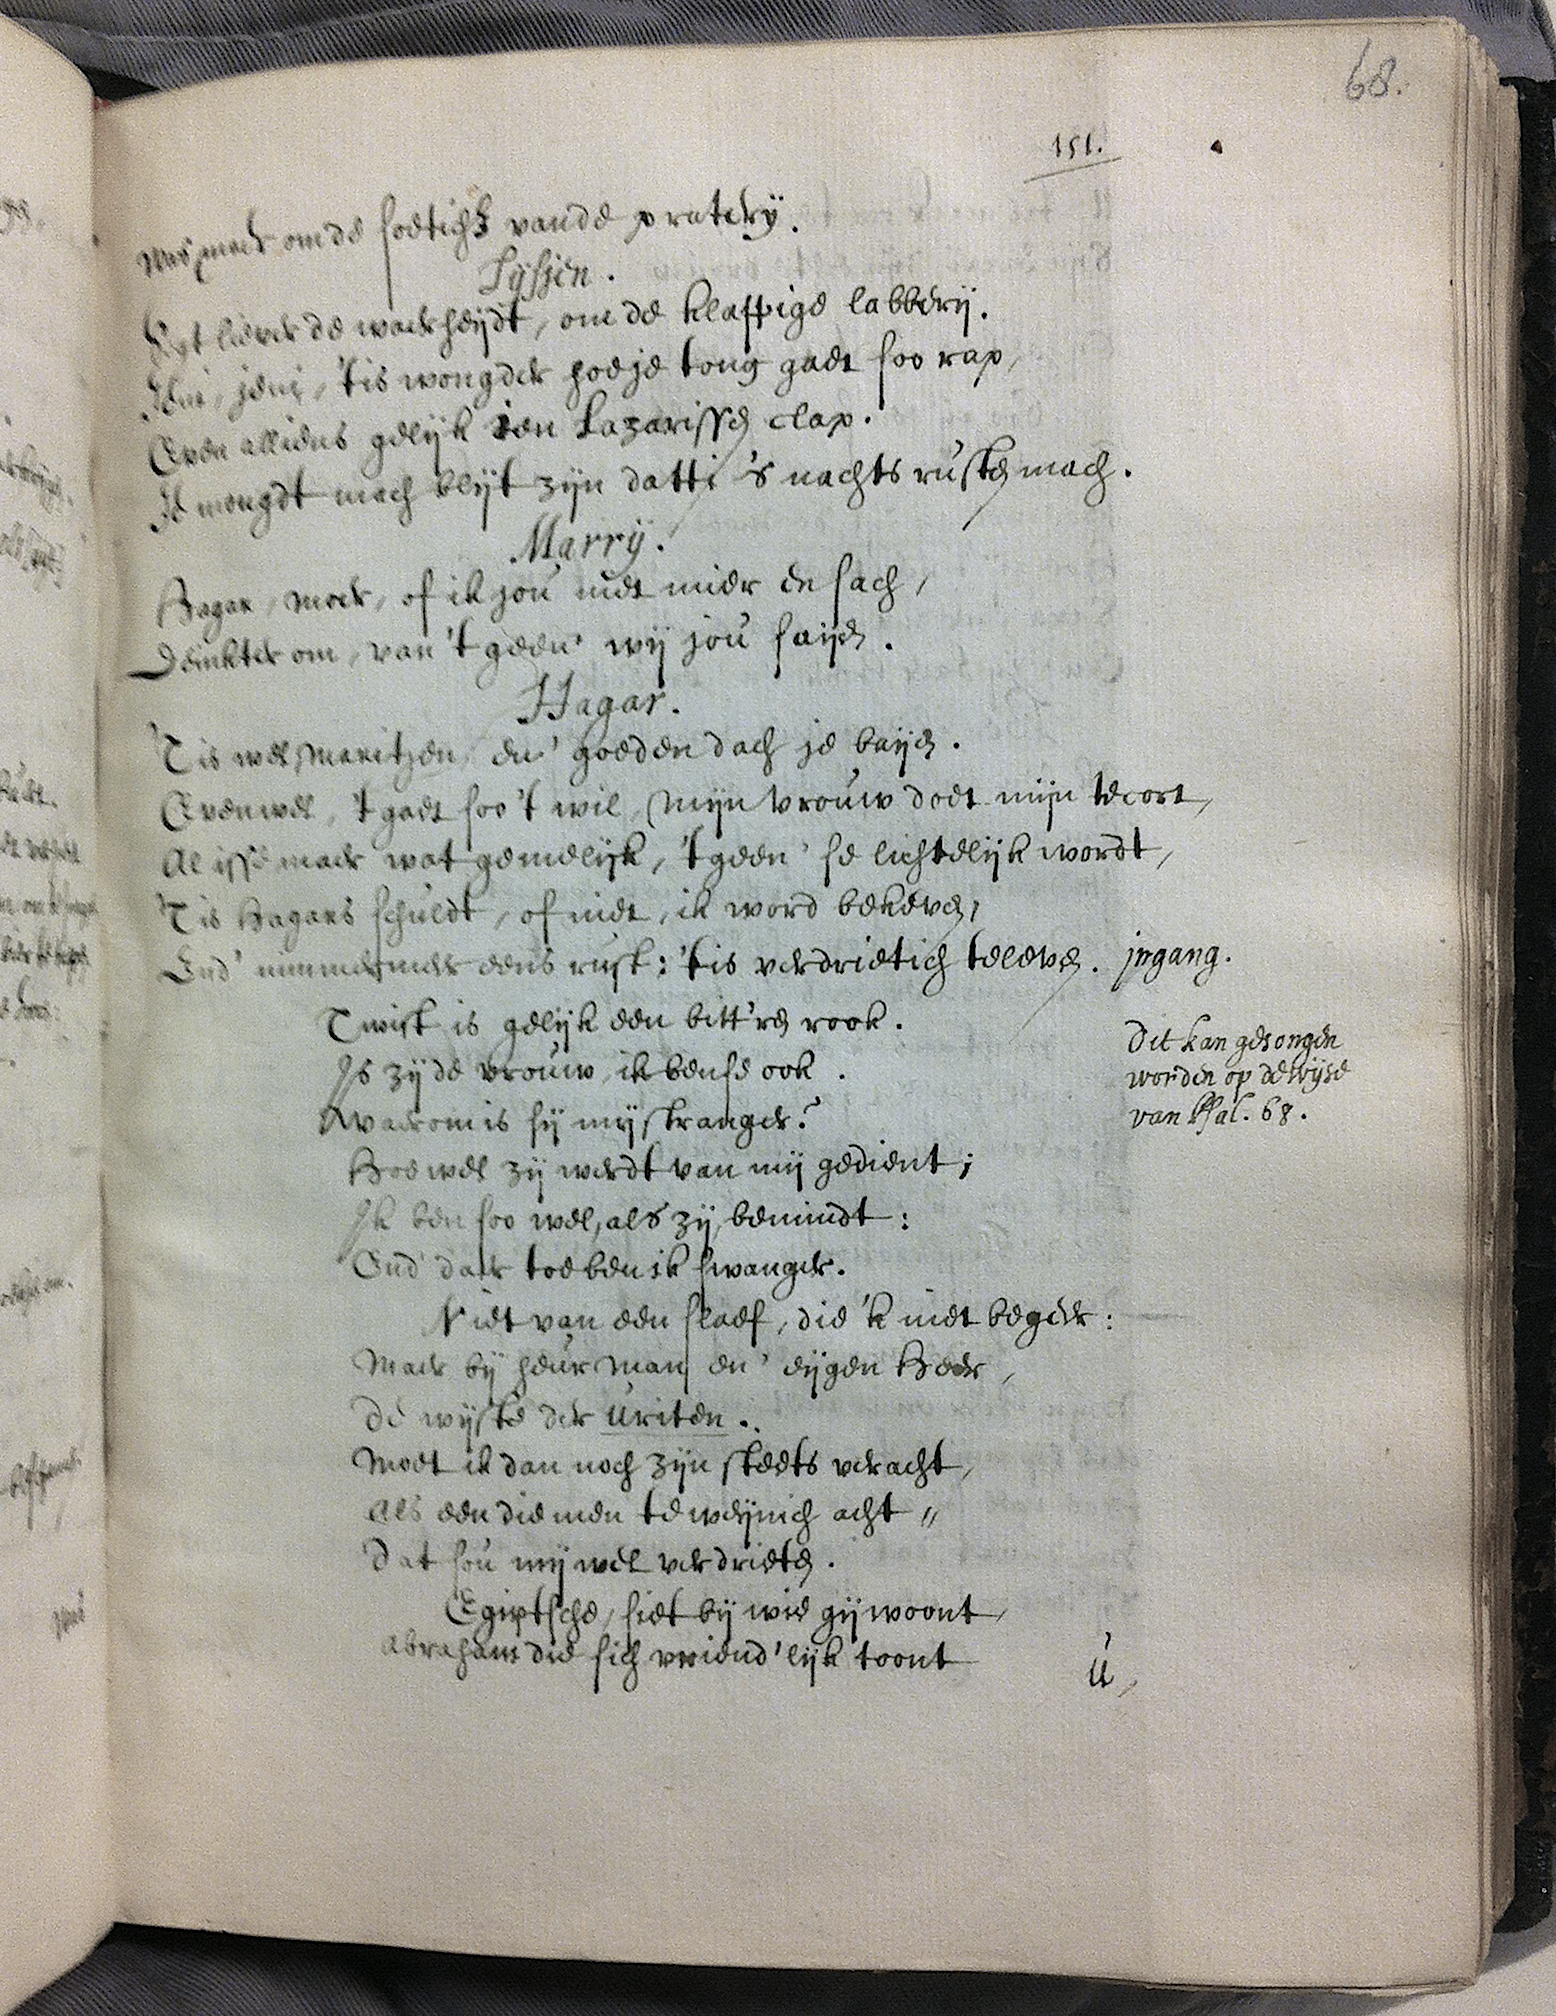 68.
151.
Was maer om de soeticheyt vande pratery.
Lyssjen.
Segt liever de waerheydt, om de klappige labberij.
Jeni, jeni, 'tis wongder hoe je tong gaet soo rap,
Even alliens gelijk ien Lazarissen clap.
Je mongdt mach blijt zijn datti 's nachts rusten mach.
Marrÿ.
Hagar, moer, of ik jou niet mier en sach,
Deinkter om, van 't geen' wij jou saijen.
Hagar.
'Tis wel Maritzen, en' goeden dach je baijen.
Evenwel, 't gaet soo 't wil, Mijn Vrouw doet mijn te cort,
Al isse maer wat gemelijk, 't geen' se lichtelijk wordt,
'Tis Hagars schuldt, of niet, ik word bekeven,
End' nimmermeer eens rust: 'tis verdrietich te leven. jngang.
Twist is gelijk een bitt'ren rook.
Is zij de vrouw, ik ben se ook.
Waerom is sij mij stranger?
Hoewel zij werdt van mij gedient;
Ik ben soo wel, als zij, bemindt:
End' daer toe ben ik swanger.
Dit kan gesongen
worden op de wijse
van Psal. 68.
Niet van een slaef, die 'k niet begeer:
Maer bij heur man en' eijgen Heer,
De wijste der Uriten.
Moet ik dan noch zijn steets veracht,
Als een die men te weijnich acht,,
Dat sou mij wel verdrieten.
Egiptsche, siet bij wie gij woont,
Abraham die sich vriend'lijk toont
U,